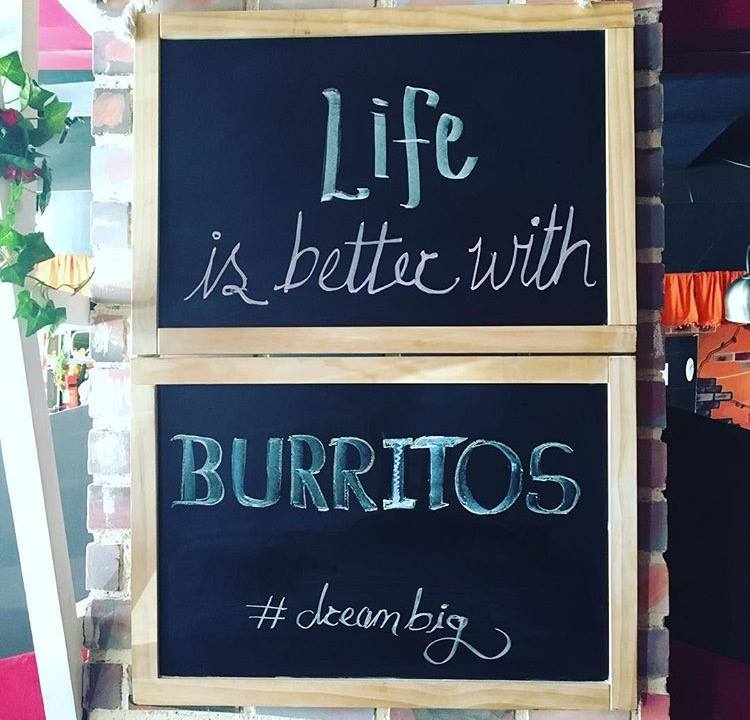 Life
is better with
BURRITOS
#dreambig